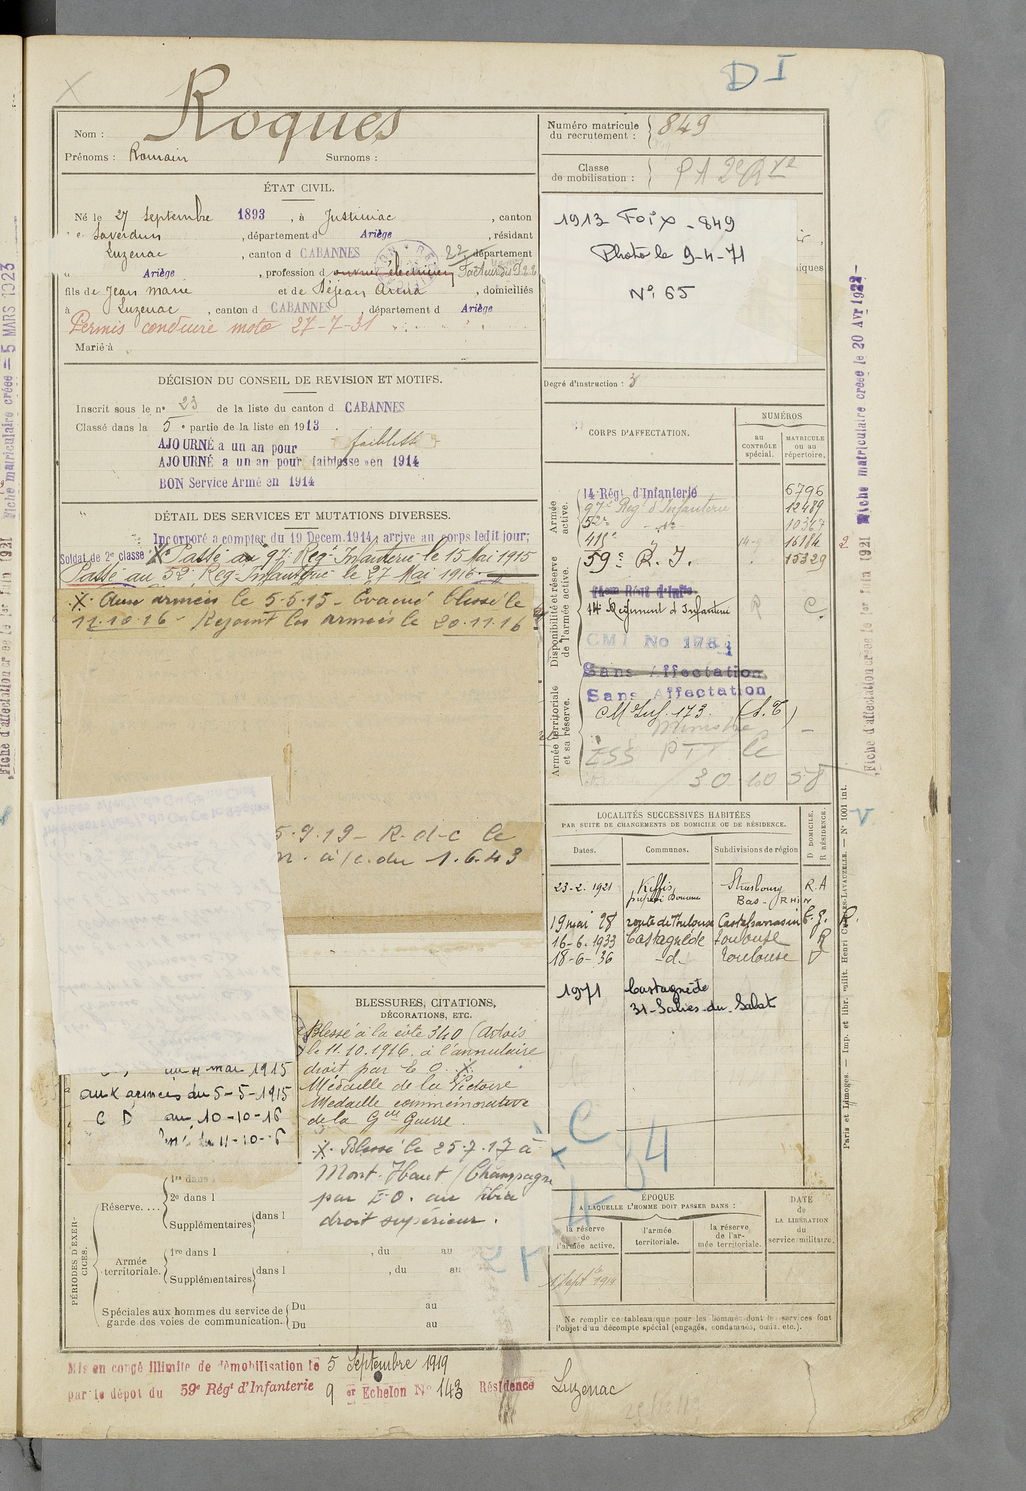 D I
Nom : Roques
Prénoms : Romain Surnoms :
ÉTAT CIVIL.
Né le 27 Septembre 1893, à Justiniac, canton
de Saverdun, département d Ariège, résidant
Luzenac, canton d CABANNES 22 département
Ariège, profession d ouvrier électricien Facteur des P
fils de Jean Marie et de Séjean Anna, domiciliés
à Luzenac, canton d CABANNES, département d Ariège
Permis conduire moto 27-7-31
Marié à
DÉCISION DU CONSEIL DE REVISION ET MOTIFS.
Inscrit sous le n° 23 de la liste du canton d CABANNES
Classé dans la 5e partie de la liste en 1913.
AJOURNÉ a un an pour faiblesse
AJOURNÉ a un an pour faiblesse en 1914
BON Service Armé en 1914
DÉTAIL DES SERVICES ET MUTATIONS DIVERSES.
Incorporé a compter du 19 Decem. 1914, arrive au corps ledit jour;
Soldat de 2e classe X Passé au 97e Reg. Infanterie le 15 Mai 1915
Passé au 52e Reg. Infanterie le 27 Mai 1916.
X Aux armées le 5-5-15 - Evacué blessé le
11.10.16 - Rejoint les armées le 20.11.16
5.9.19 - R.d.c le
à/c. du 1.6.43
4 mai 1915
aux armées du 5-5-1915
C D au 10-10-16
du 11-10-16
BLESSURES, CITATIONS,
DÉCORATIONS, ETC.
Blessé à la côte 340 (Artois
le 11.10.1916 à l'annulaire
droit par é O. X.
Médaille de la Victoire
Médaille commémorative
de la Gde Guerre.
X. Blessé le 25.7.17 à
Mont-Haut (Champagne
par E.O. au tibia
droit supérieur.
PÉRIODES D'EXERCICES.
Réserve....
1re dans l
2e dans l
Supplémentaires dans l
Armée territoriale.
1re dans l , du au
Supplémentaires dans l , du au
Spéciales aux hommes du service de garde des voies de communication.
Du au
Du au
Mis en congé illimité de démobilisation le 5 Septembre 1919
par le dépôt du 59e Régt d'Infanterie 9 er Echelon N° 143 Résidence Luzenac
Numéro matricule du recrutement : 849
Classe de mobilisation : P A 2e R
1913 Foix - 849
Photo le 9-4-71
N° 65
Degré d'instruction : 3
CORPS D'AFFECTATION.
NUMÉROS
au CONTRÔLE spécial.
MATRICULE ou au répertoire.
Armée active.
14 Régt d'Infanterie 6796
97e Regt d'Infanterie 12489
52e - do - 10347
411e 16184
59e R. I. 15329
Disponibilité et réserve de l'armée active.
14e Régiment d'Infanterie R C
CMI No 178
Sans Affectation
Sans Affectation
Armée territoriale et sa réserve.
CM Inf. 173. (S.T)
Ministre
ESS PTT le
30 10 58
LOCALITÉS SUCCESSIVES HABITÉES
PAR SUITE DE CHANGEMENTS DE DOMICILE OU DE RÉSIDENCE.
Dates. Communes. Subdivisions de région
D DOMICILE. R RÉSIDENCE.
23-2-1921 Keffis Strasbourg R.A
Bas-(RHIN
19 mai 28 route de Toulouse Castelsarrasin R.
16-6-1933 Castagnède Toulouse R
18-6-36 -d- Toulouse D
1971 Castagnède
31-Salies-du-Salat
C
34
ÉPOQUE
A LAQUELLE L'HOMME DOIT PASSER DANS :
la réserve de l'armée active.
l'armée territoriale.
la réserve de l'armée territoriale.
DATE de LA LIBÉRATION du service militaire.
1 Sept
Ne remplir ce tableau que pour les hommes dont les services font
l'objet d'un décompte spécial (engagés, condamnés, omis, etc.).
Paris et Limoges. — Imp. et libr. milit. Henri Charles-Lavauzelle. — N° 1001 int.
Fiche d'affectation créée le 1er Juin 1921 Fiche matriculaire créée le 20 Avr 192
Fiche d'affectation créée le 1er Juin 1921 Fiche matriculaire créée = 5 MARS 1923